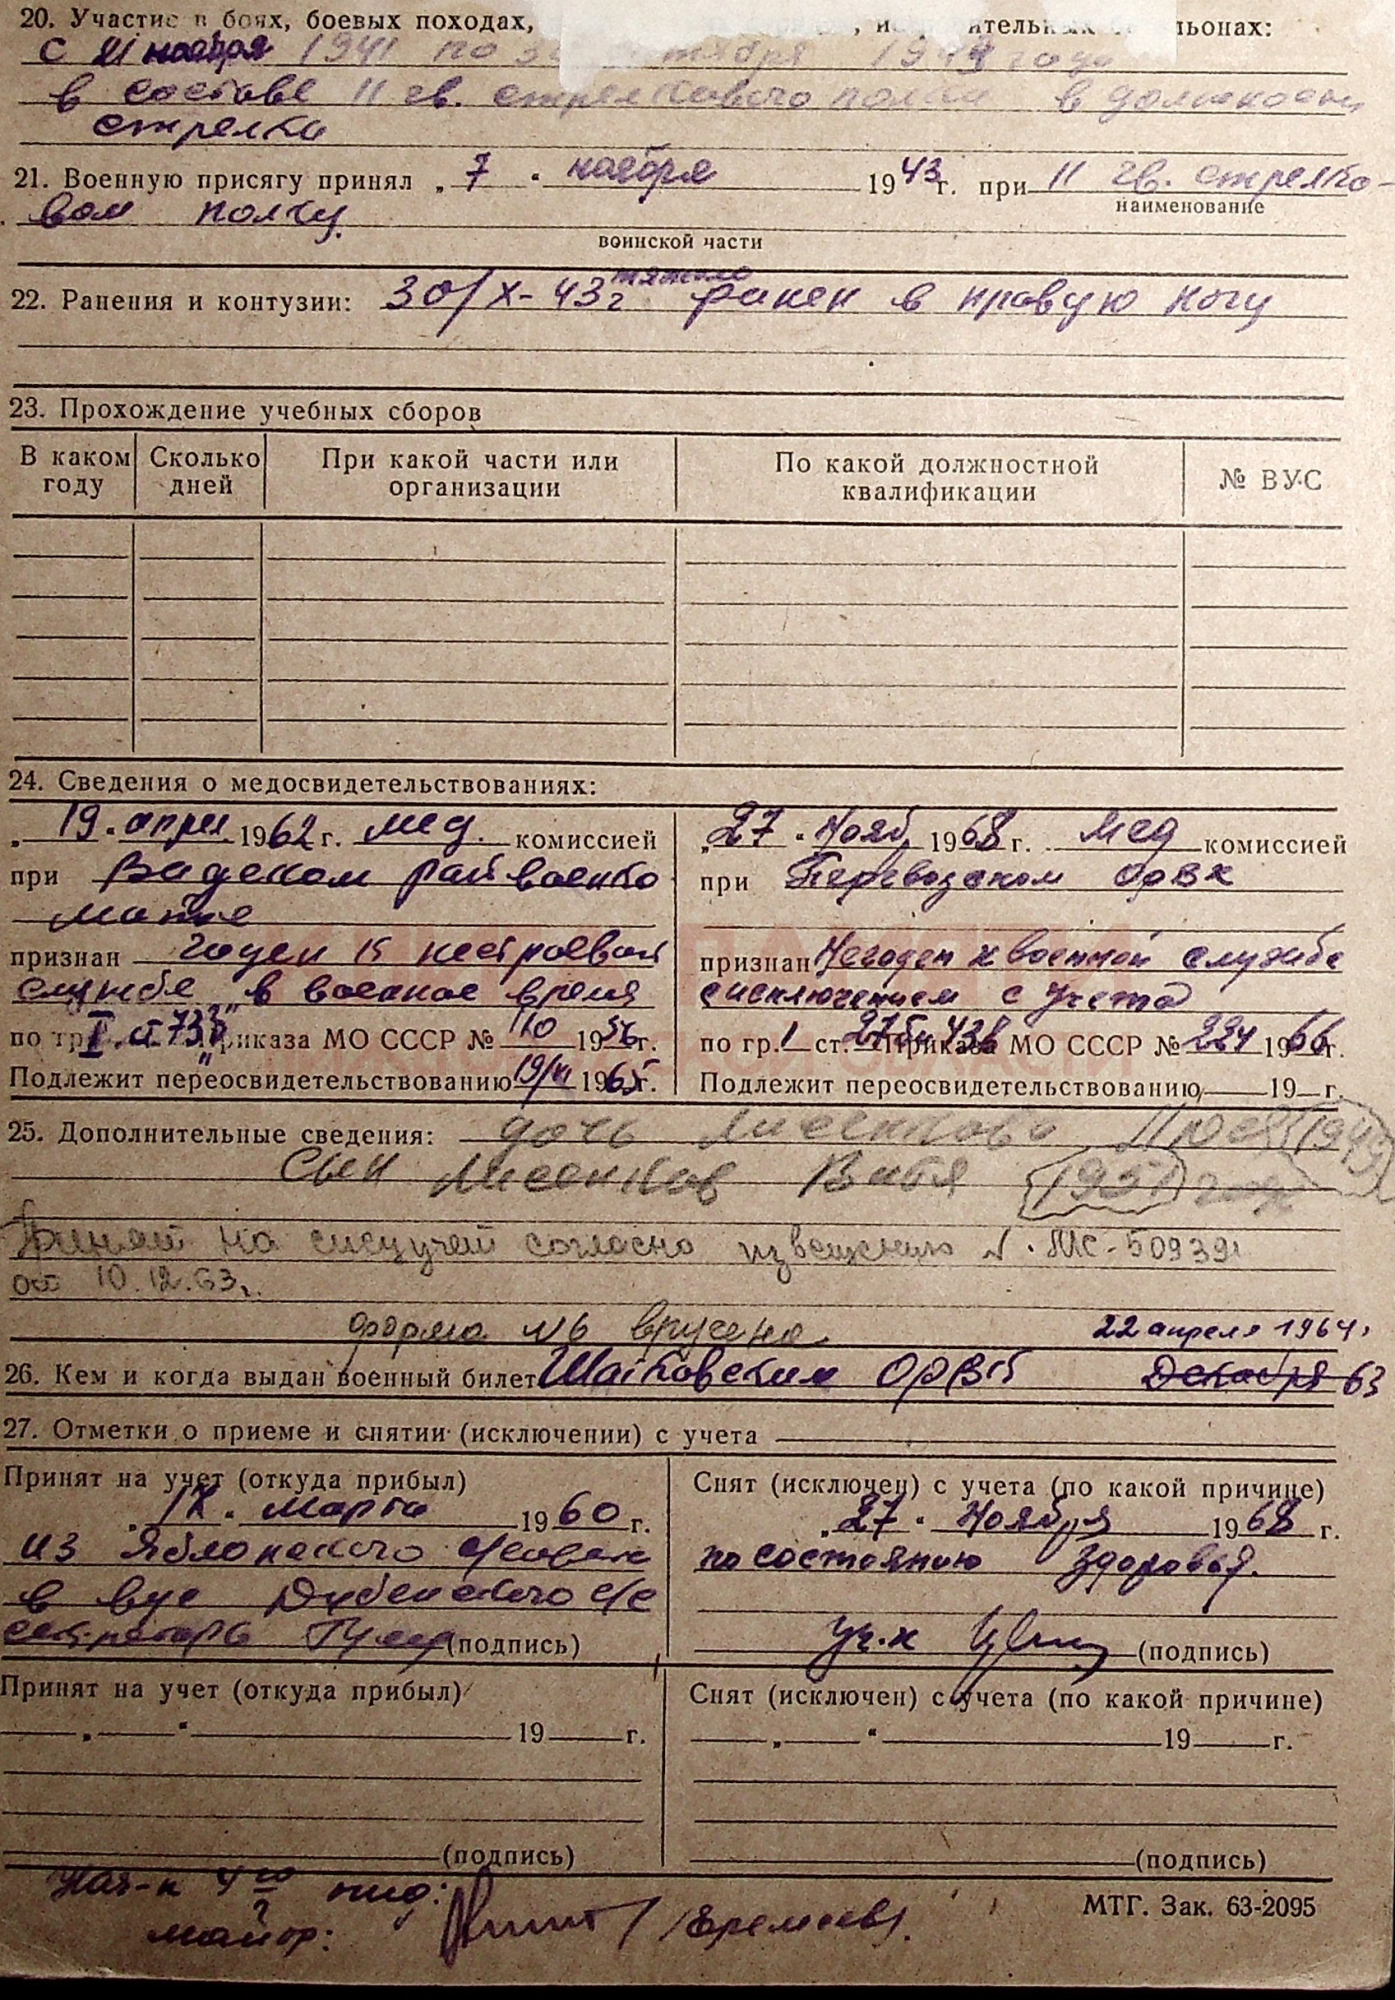 20. Участие в боях, боевых походах,
с 21 ноября 1941 по 30 1943 года
в составе 11 гв. стрелкового полка в должности
стрелка
21. Военную присягу принял „ 7 “ ноября 1943 г. при 11 гв. стрелко-
наименование
вом полку.
воинской части
22. Ранения и контузии: 30/X-43г тяжело ранен в правую ногу
23. Прохождение учебных сборов
В каком году
Сколько дней
При какой части или организации
По какой должностной квалификации
№ ВУС
24. Сведения о медосвидетельствованиях:
„ 19 “ апрел 1962 г. мед. комиссией
при Вадском райвоенко
мате
признан годен к нестроевой
службе в военное время
по гр. I ст 73б приказа МО СССР № 110 1956 г.
Подлежит переосвидетельствованию 19/VI 1965 г.
„ 27 “ Нояб 1968 г. Мед комиссией
при Перевозском ОРВК
признан Негоден к военной службе
с исключением с учета
по гр. 1 ст. Приказа МО СССР № 224 1966 г.
Подлежит переосвидетельствованию 19 г.
25. Дополнительные сведения: дочь Лисенкова 1949
Сын Лисенков Витя 1951 года
Принят на спецучет согласно извещению №. МС-509391
от 10.12.63г.
форма №6 вручена 22 апреля 1964г
26. Кем и когда выдан военный билет Шатковским ОРВК Декабря 63
27. Отметки о приеме и снятии (исключении) с учета
Принят на учет (откуда прибыл)
марта 1960 г.
из Яблонского с/совета
в вус Дубенского с/с
секретарь (подпись)
Снят (исключен) с учета (по какой причине)
„ 27 “ Ноября 1968 г.
по состоянию здоровья.
уч.к (подпись)
Принят на учет (откуда прибыл)
„ “ 19 г.
(подпись)
Снят (исключен) с учета (по какой причине)
„ “ 19 г.
(подпись)
Нач-к 4го отд:
майор: /Еремеев/.
МТГ. Зак. 63-2095